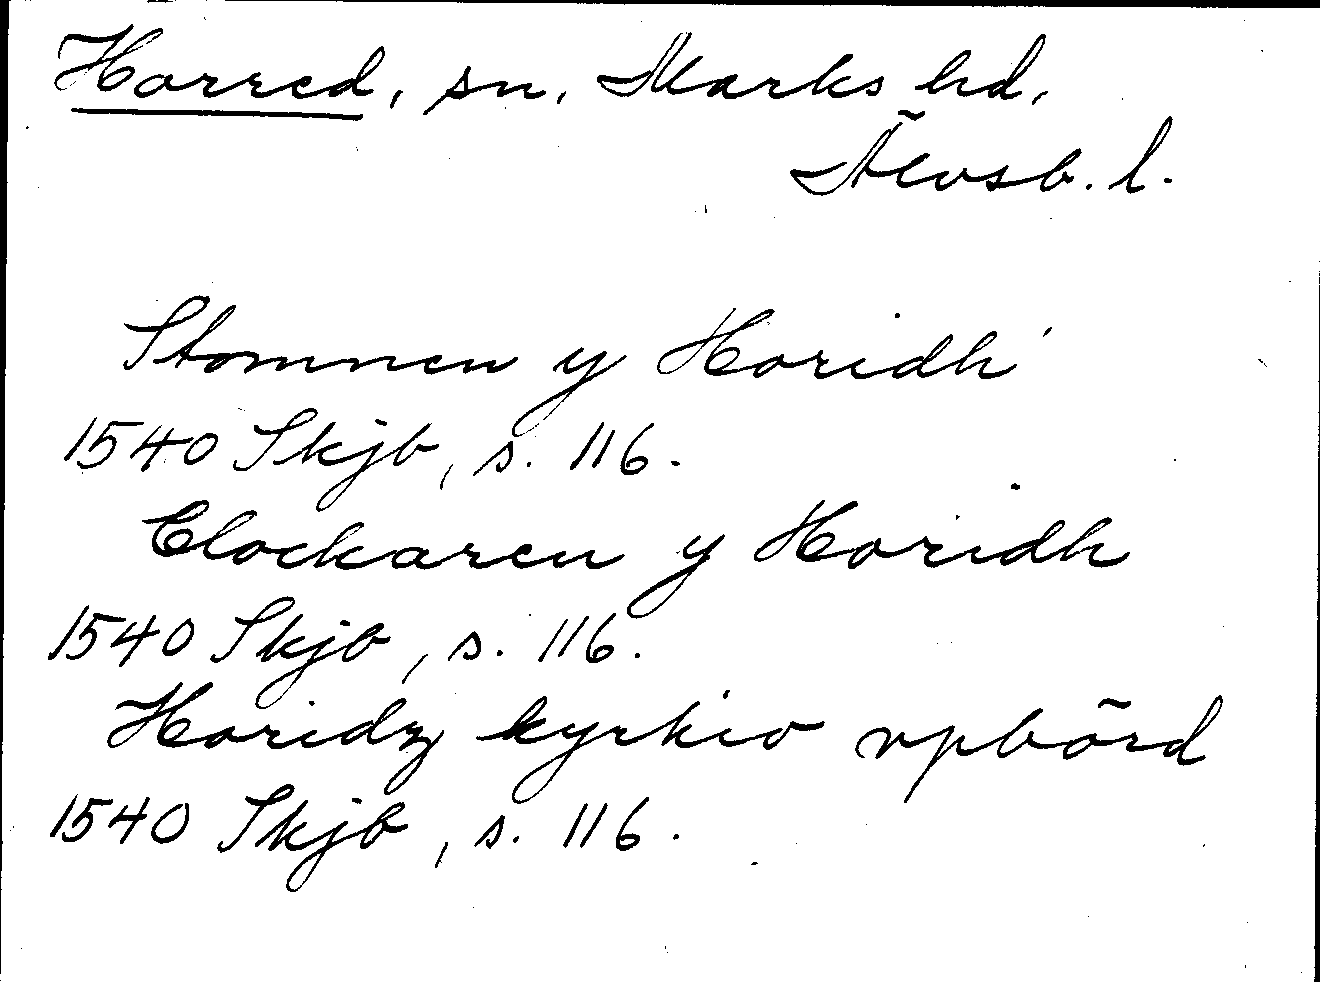 Horred, sn, Marks hd,
Älvsb. l.
Stomnen y Horidh
1540 Skjb, s. 116.
Clockaren y Horidh
1540 Skjb, s. 116.
Horidz kyrkio vpbörd
1540 Skjb, s. 116.